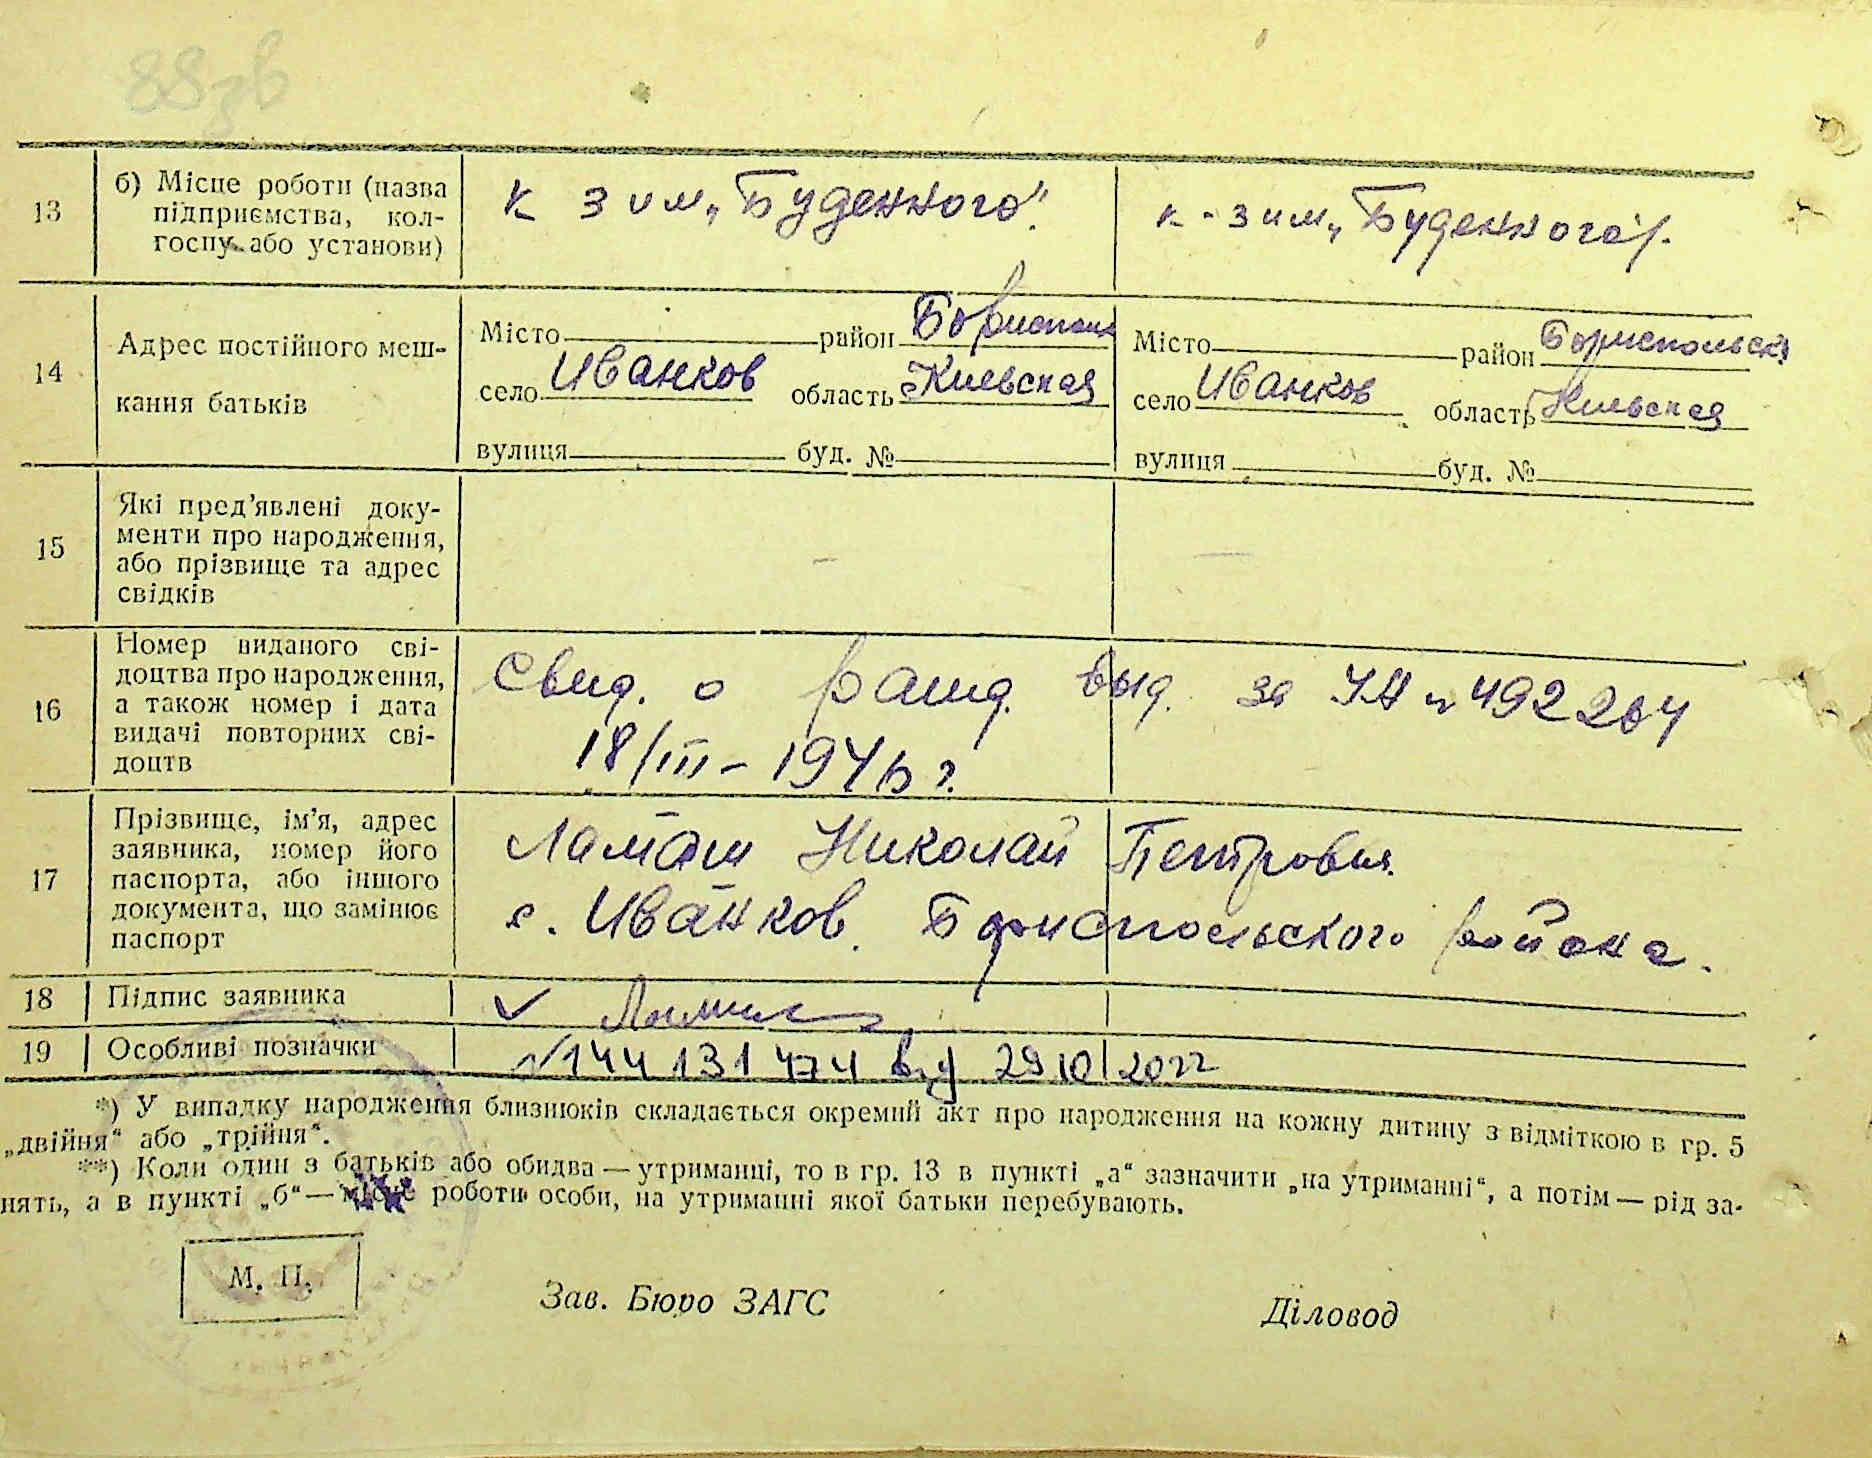 88зв
13
б) Місце роботи (назва
підприємства, кол-
госпу або установи)
к з им „Буденного".
к-з им „Буденного".
14
Адрес постійного меш-
кання батьків
Місто район Бориспольск
село Иванков область Киевская
вулиця буд. №
Місто район Бориспольск
село Иванков область Киевская
вулиця буд. №
15
Які пред'явлені доку-
менти про народження,
або прізвище та адрес
свідків
— —
16
Номер виданого сві-
доцтва про народження,
а також номер і дата
видачі повторних сві-
доцтв
Свид. о рожд. выд. за № 492264
18/III – 1946 г.
17
Прізвище, ім'я, адрес
заявника, номер його
паспорта, або іншого
документа, що замінює
паспорт
Ламаш Николай Петрович.
с. Иванков. Бориспольского района.
18 Підпис заявника
19 Особливі позначки
144 131 474 від 29/10/2022
*) У випадку народження близнюків складається окремий акт про народження на кожну дитину з відміткою в гр. 5
„двійня“ або „трійня“.
**) Коли один з батьків або обидва — утриманці, то в гр. 13 в пункті „а“ зазначити „на утриманні“, а потім — рід за-
нять, а в пункті „б“ — місце роботи особи, на утриманні якої батьки перебувають.
М. П.
Зав. Бюро ЗАГС
Діловод